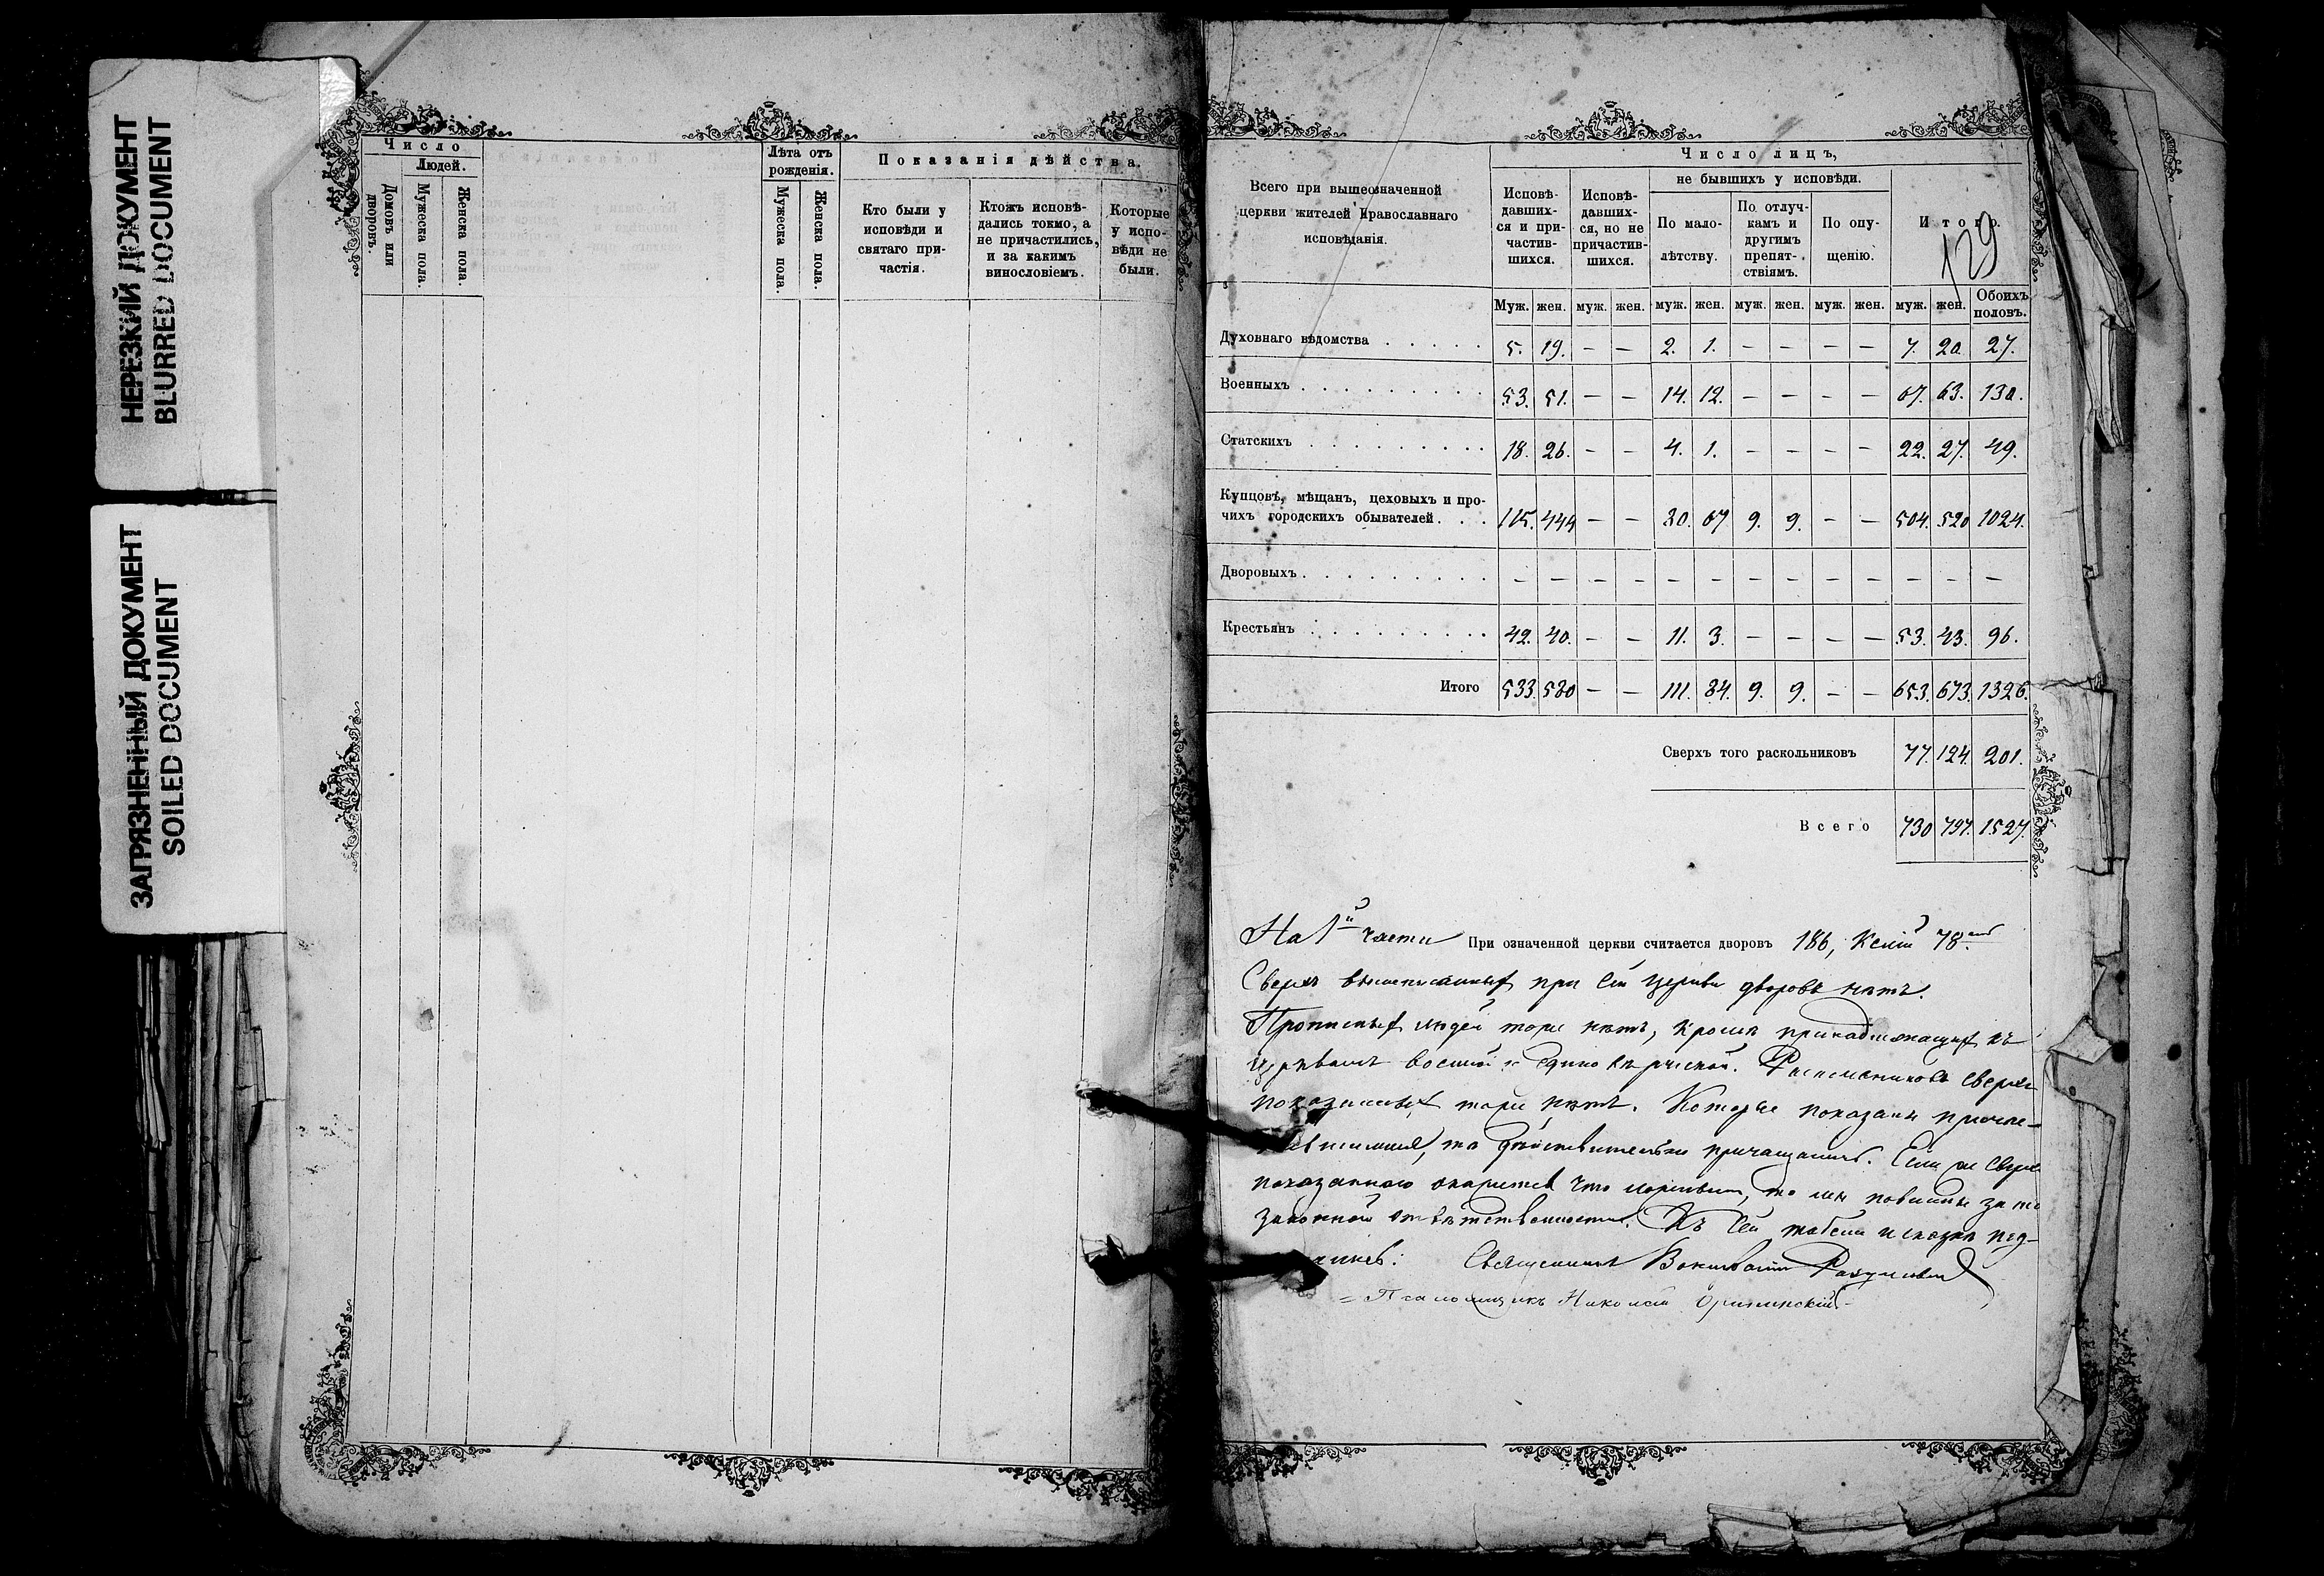 НЕРЕЗКИЙ ДОКУМЕНТ
BLURRED DOCUMENT
ЗАГРЯЗНЕННЫЙ ДОКУМЕНТ
SOILED DOCUMENT
Число
Людей.
Домовъ или дворовъ.
Мужеска пола.
Женска пола.
Лѣта отъ рожденія.
Мужеска пола.
Женска пола.
Показанія дѣйства.
Кто были у исповѣди и святаго причастія.
Ктожъ исповѣдались токмо, а не причастились, и за какимъ винословіемъ.
Которые у исповѣди не были.
129
Всего при вышеозначенной
церкви жителей православнаго
исповѣданія.
Число лицъ,
Исповѣдавшихся и причастившихся.
Исповѣдавшихся, но не причастившихся.
не бывшихъ у исповѣди.
По малолѣтству.
По отлучкамъ и другимъ препятствіямъ.
По опущенію.
Итого.
Муж. жен. муж. жен. муж. жен. муж. жен. муж. жен. муж. жен. Обоихъ половъ.
Духовнаго вѣдомства . . . . . 5. 19. – – 2. 1. – – – – 7. 20. 27.
Военныхъ . . . . . . . . . . 53. 51. – – 14. 12. – – – – 67. 63. 130.
Статскихъ . . . . . . . . . 18. 26. – – 4. 1. – – – – 22. 27. 49.
Купцовъ, мѣщанъ, цеховыхъ и про-
чихъ городскихъ обывателей. . . 415. 444 – – 80. 67 9. 9. – – 504. 520 1024.
Дворовыхъ. . . . . . . . . . – – – – – – – – – – – – –
Крестьянъ . . . . . . . . . . 42. 40. – – 11. 3. – – – – 53. 43. 96.
Итого 533. 580 – – 111. 84. 9. 9. – – 653. 673. 1326.
Сверхъ того раскольниковъ 77. 124. 201.
Всего 730 797. 1527.
На 1й части При означенной церкви считается дворовъ 186, келій 78
Сверхъ вышеписанныхъ при сей церкви дворовъ нѣтъ.
Прописныхъ людей тоже нѣтъ, кромѣ принадлежащихъ къ
церквамъ военной и единовѣрческой. Раскольниковъ сверхъ
показанныхъ тоже нѣтъ. Которые показаны
то дѣйствительно причащались. Если же сверхъ
показаннаго окажется что то мы повинны за то
законной отвѣтственности. Къ сей табели и сказкѣ под-
Священникъ
Псаломщикъ Николай